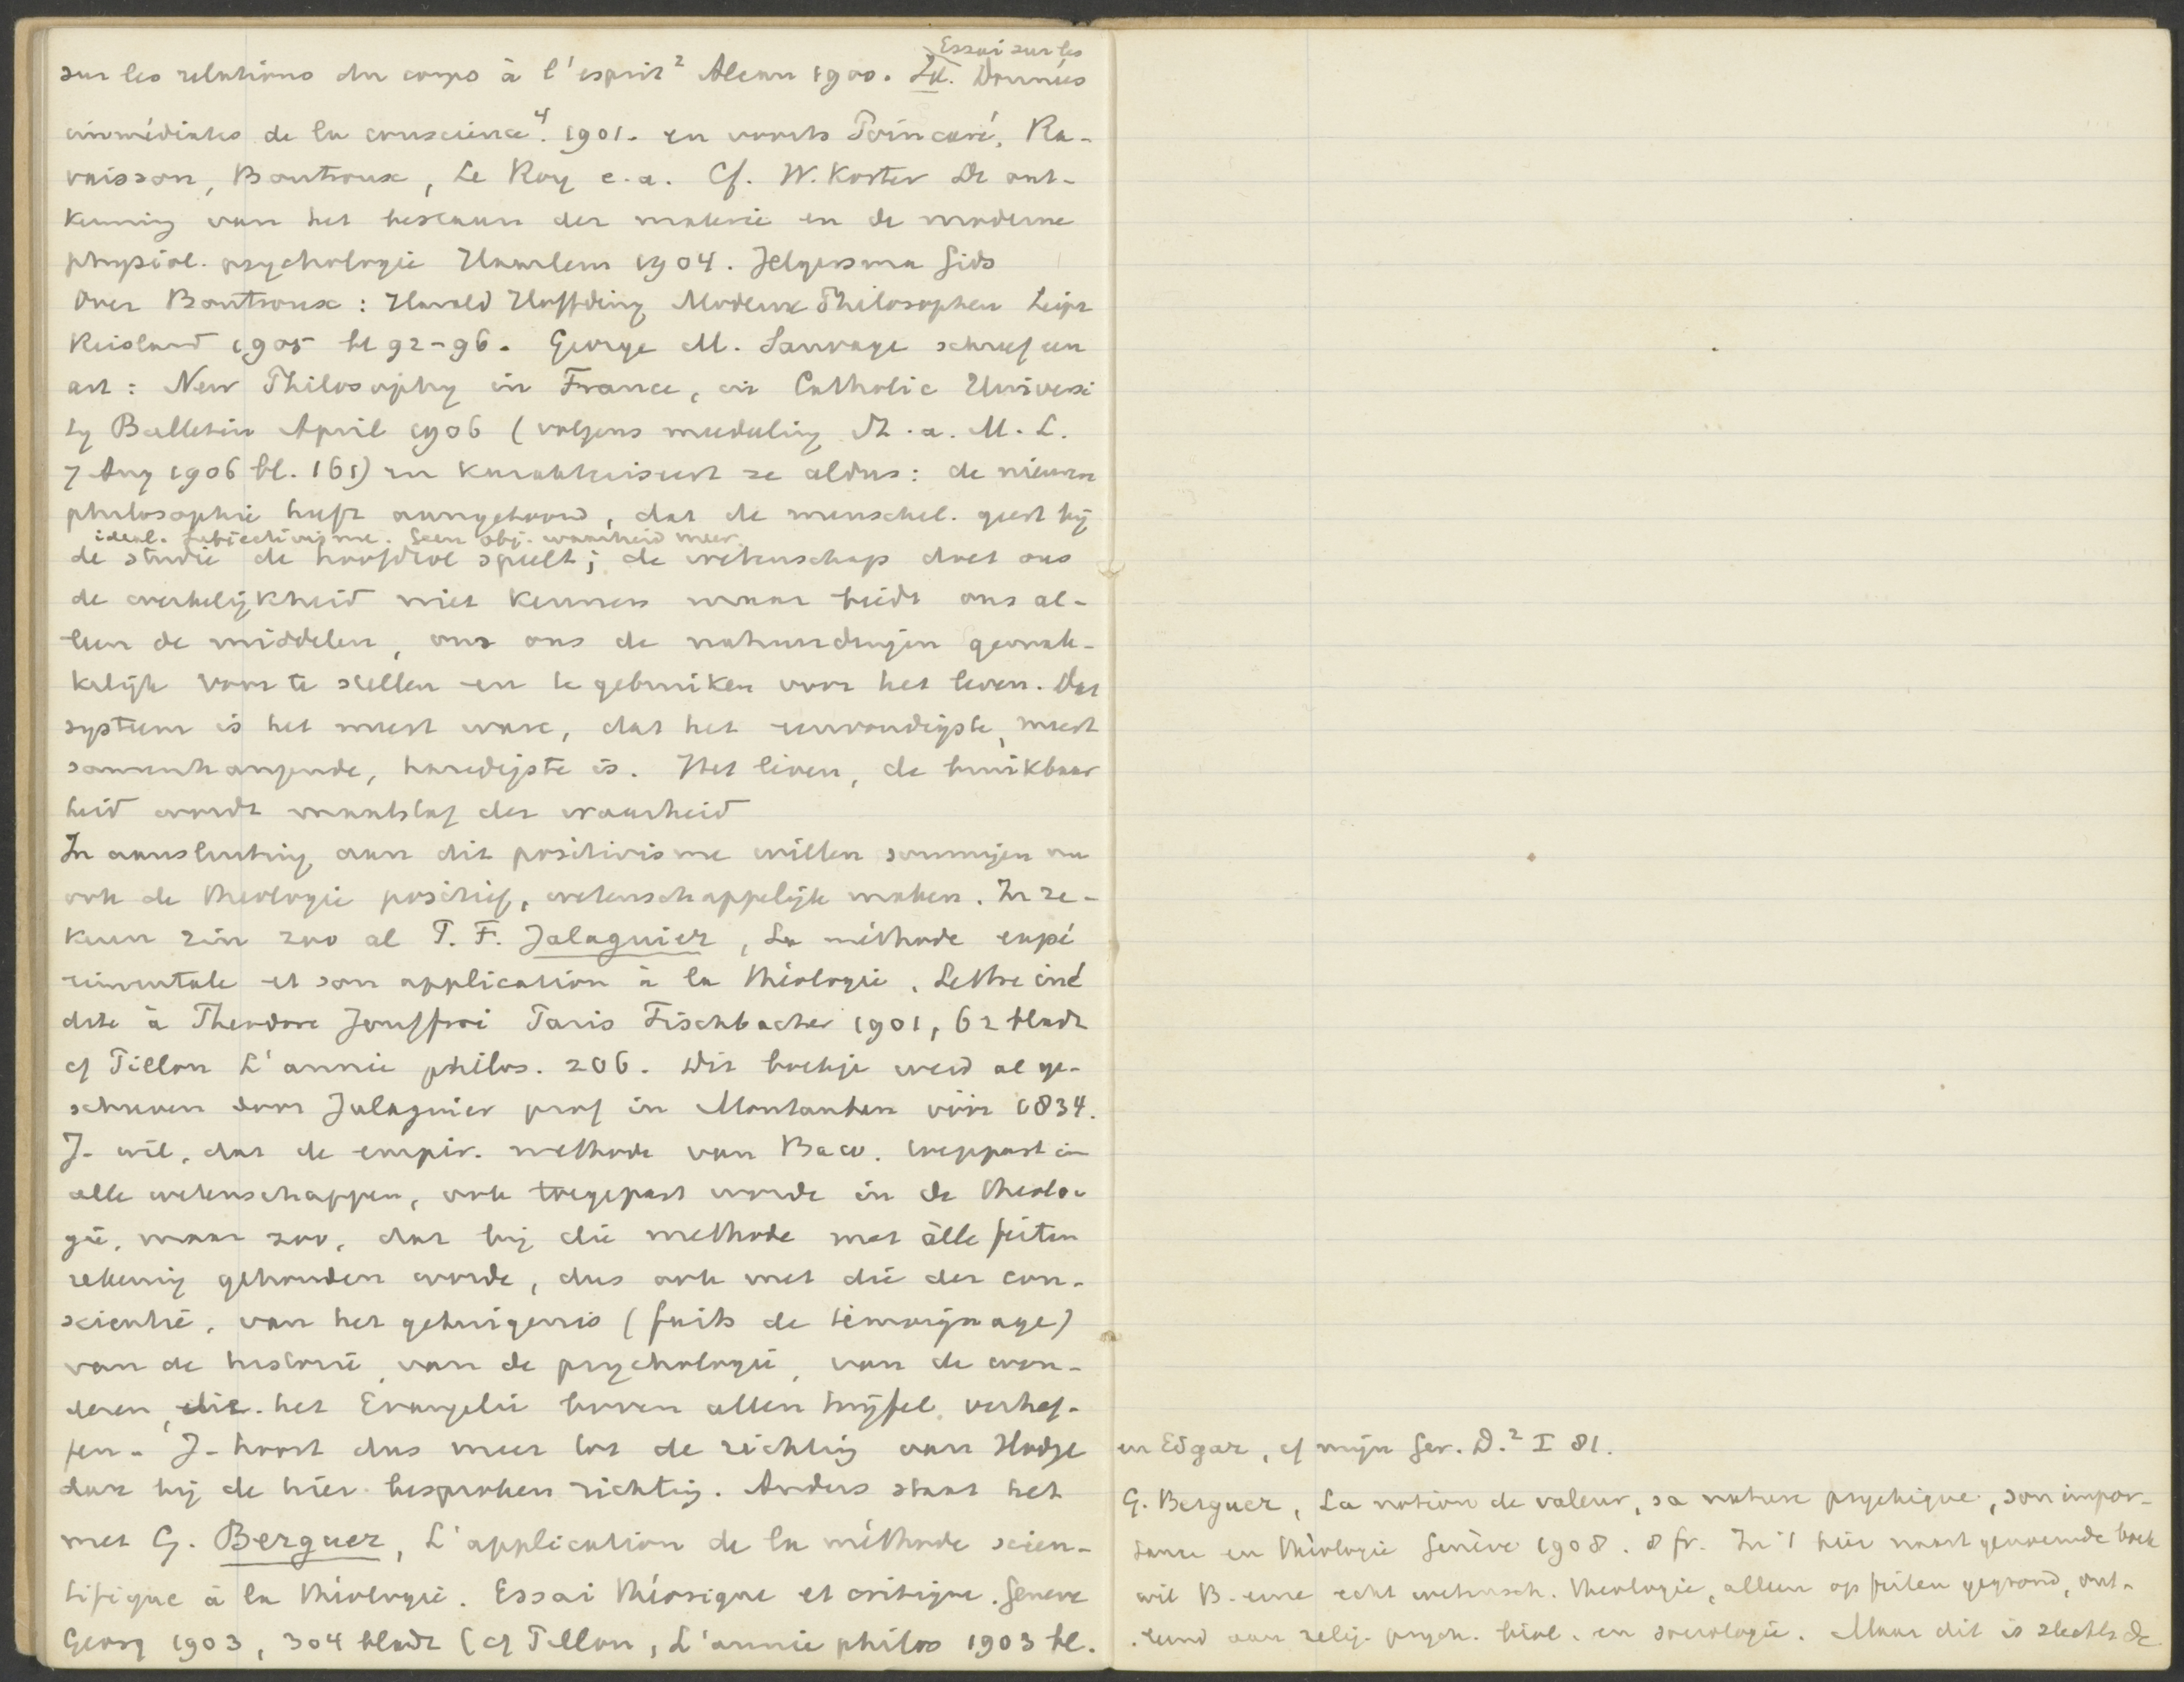 Essai sur les
sur les relations du corps à l'esprit² Alcan 1900. Id. Données
immédiates de la conscience⁴. 1901. en voorts Poincaré, Ra-
vaisson, Boutroux, Le Roy e.a. Cf. W. Koster De ont-
kenning van het bestaan der materie en de moderne
physiol. psychologie Haarlem 1904. Jelgersma Gids
Over Boutroux: Harald Höffding Moderne Philosophen Leipz
Reisland 1905 bl 92-96. George M. Sauvage schreef een
art: New Philosophy in France, in Catholic Universi
ty Bulletin April 1906 (volgens mededeeling St. a. M. L.
7 Aug 1906 bl. 161) en karakteriseert ze aldus: de nieuwe
philosophie heeft aangetoond, dat de menschel. geest bij
ideal. subjectivisme. Geen obj. waarheid meer.
de studie de hoofdrol speelt; de wetenschap doet ons
de werkelijkheid niet kennen maar biedt ons al-
leen de middelen, om ons de natuurdingen gemak-
kelijk voor te stellen en te gebruiken voor het leven. Dat
systeem is het meest ware, dat het eenvoudigste, meest
samenhangende, handigste is. Het leven, de bruikbaar
heid wordt maatstaf der waarheid
In aansluiting aan dit positivisme willen sommigen nu
ook de theologie positief, wetenschappelijk maken. In ze-
keren zin zoo al P. F. Jalaguier, La méthode expé
rimentale et son application à la théologie. Lettre iné
dite à Theodore Jouffroi Paris Fischbacher 1901, 62 bladz
cf Pillon L'année philos. 206. Dit boekje werd al ge-
schreven door Jalaguier prof in Montauban vóór 1834.
J- wil, dat de empir. methode van Baco. toegepast in
alle wetenschappen, ook toegepast worde in de theolo-
gie, maar zoo, dat bij die methode met álle feiten
rekening gehouden worde, dus ook met die der con-
scientie, van het getuigenis (faits de témoignage)
van de historie, van de psychologie, van de won-
deren, die het Evangelie boven allen twijfel verhef-
fen. J- hoort dus meer tot de richting van Hodge
dan bij de hier besproken richting. Anders staat het
met G. Berguer, L'application de la méthode scien-
tifique à la théologie. Essai théorique et critique. Geneve
Georg 1903, 304 bladz (cf Pillon, L'année philos 1903 bl.
en Edgar, cf mijn Ger. D.² I 81.
G. Berguer, La notion de valeur, sa nature psychique, son impor-
tance en théologie Genève 1908. 8 fr. In 't hier naast genoemde boek
wil B. eene echt wetensch. theologie, alleen op feiten gegrond, ont-
leend aan relig. psych. biol. en sociologie. Maar dit is slechts de